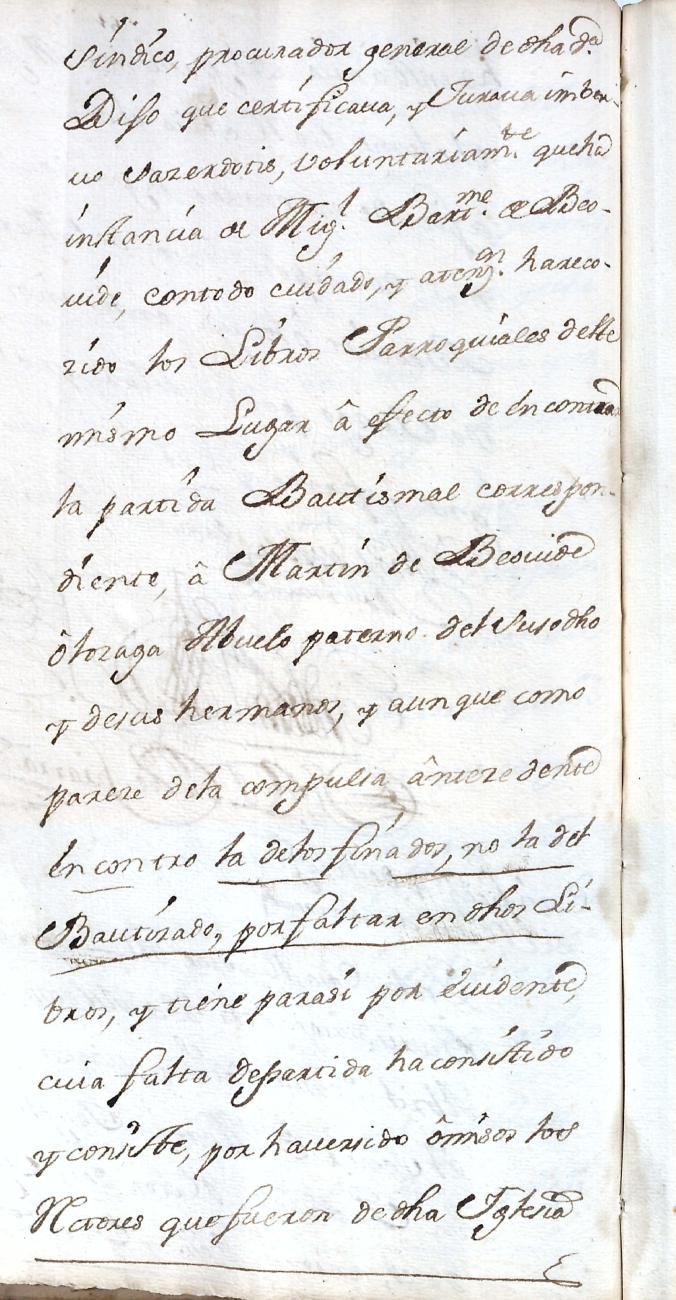 síndico, procurador general de dha
Diso que certificava, y Jurava in ver-
vo sazerdotis, voluntariam.te que ha
instancia de Mig.l Bart.me de Beo-
vide, con todo cuidado, y atenz.on ha reco-
rido los Libros Parroquiales deste
mismo Lugar â efecto de encontrar
la partida Bautismal correspon-
diente, â Martin de Beovide
ôlozaga Abuelo paterno del Susodho
y desus hermanos, y aunque como
pareze dela compulsa ântezedente
encontro la delos finados, no la del
Bautizado, por faltar en dhos Li-
bros, y tiene parasi por evidente,
cuia falta departida ha consistido
y consiste, por haversido ômisos los
Rectores que fueron de dha Iglesia